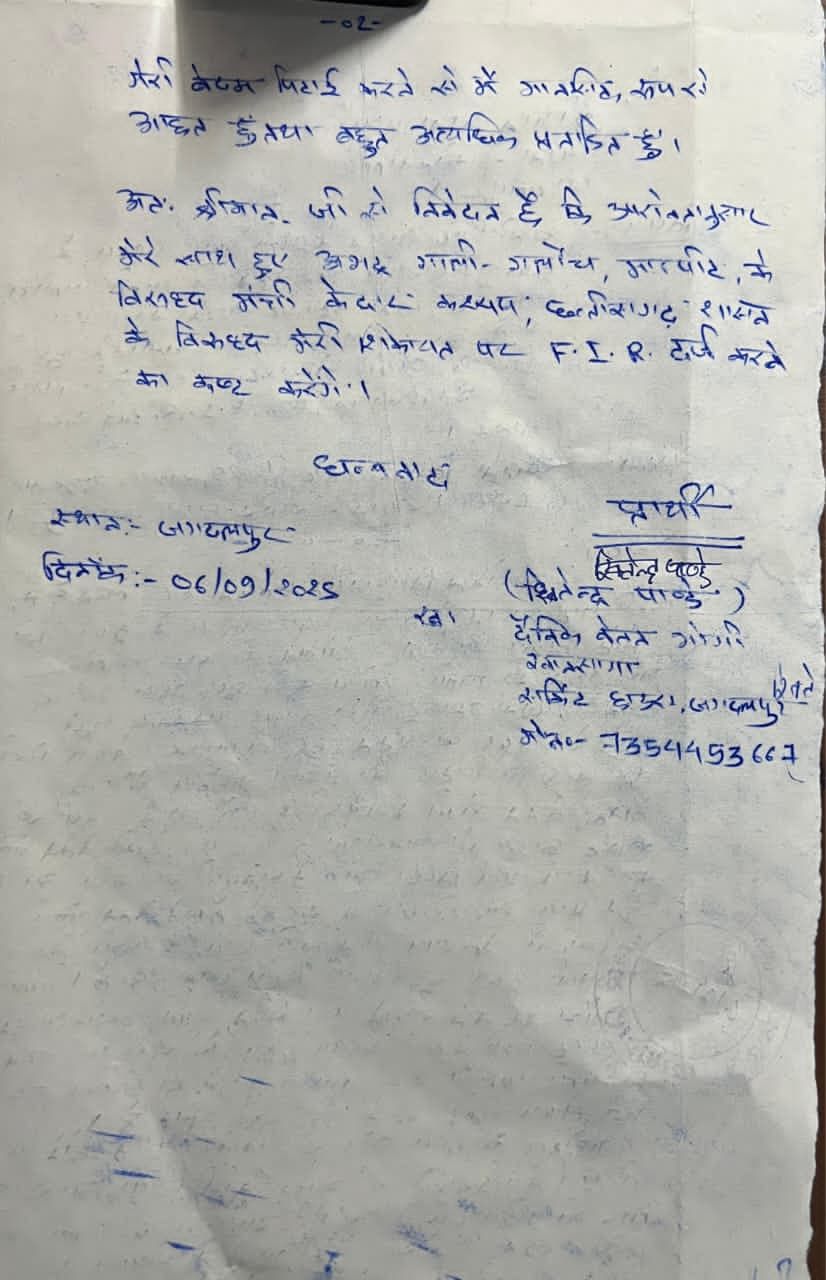 -02-
मेरी बेदम पिटाई करने से मैं मानसिक, रूप से
आहत हुँ तथा बहुत अत्याधिक प्रताड़ित हुँ।
अतः श्रीमान. जी से निवेदन है कि आरोपानुसार
मेरे साथ हुए अभद्र गाली-गलौच, मारपीट, के
विरूध्द मंत्री केदार कश्यप, छत्तीसगढ़ शासन
के विरूध्द मेरी शिकायत पर F.I.R. दर्ज करने
का कष्ट करेंगे।
धन्यवाद
प्रार्थी
स्थान:- जगदलपुर
दिनाँक:- 06/09/2025
(खितेन्द्र पाण्डे)
दैनिक वेतन भोगी
खानसामा
सर्किट हाऊस, जगदलपुर
मो.न.- 7354453667